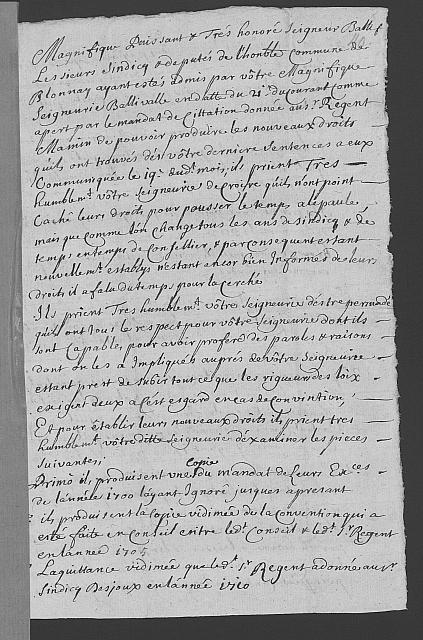 Magnifique Puissant & Trés honoré Seigneur Ballif
Les sieurs Sindicq & deputés de l'honble Commune de
Blonnay ayant estés admis par vôtre Magnifique
Seigneurie Ballivalle en datte du 21e du courant comme
apert par le mandat de Cittation donnée au sr Regent
Mamin de pouvoir produire les nouveaux droits
quils ont trouvés dèn vôtre derniere sentences a eux
Communiquée le 19e dud. mois, ils prient Tres
humblemt vôtre seigneurie de croire quils nont point
Caché leurs droits pour pousser le temps a lepaule
mais que comme lòn change tous les ans de sindicq & de
temps en temps de Conseillier, & par consequent estant
nouvellemt establys n'estant encor bien Informés de leurs
droits il a falu du temps pour la cerché
Ils prient Tres humblemt vôtre seigneurie dèstre permadé
quils ont tous le respect pour vôtre seigneurie dont ils
sont Capable, pour avoir proferé des paroles & raisons
dont on les a Impliqués auprés de vôtre Seigneurie
estant prest de subir tout ce que les rigueur des loix
exigent deux a cèst esgard en cas de Convintion,
Et pour èstablir leurs nouveaux droits ils prient tres
humblemt vôtre ditte seigneurie dèxaminer les pieces
suivantes;
Primò ils produisent une Copie du mandat de Leurs Exces
de lànneé 1700 layant Ignoré jusques apresant
ils produisent la Copie vidimeé de la Convention qui a
esté faite en Conseil entre ledt Conseil & ledt sr Regent
en lànneé 1705
La quittance vidimeé que ledt sr Regent a donné au sr
sindicq Desjoux en lànneé 1710